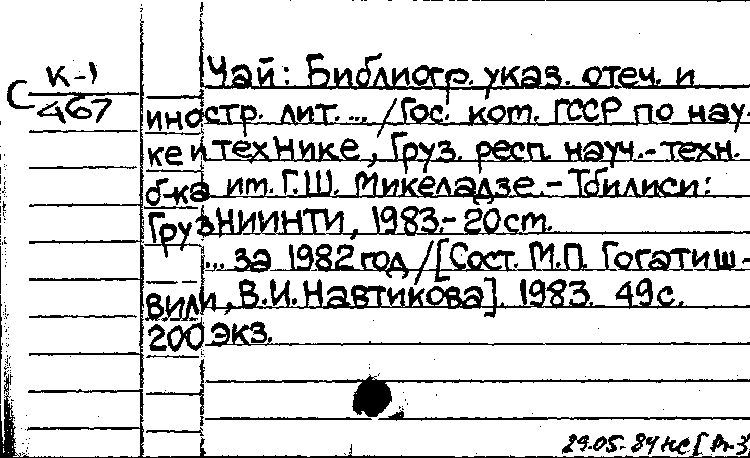 К-1
С 467
Чай: Библиогр. указ. отеч. и
иностр. лит. ... /Гос. ком. ГССР по нау-
ке и технике, Груз. респ. науч.-техн.
б-ка им. Г.Ш. Микеладзе.- Тбилиси:
ГрузНИИНТИ, 1983.- 20 см.
... за 1982 год /[Сост. М.П. Гогатиш-
вили, В.И. Навтикова]. 1983. 49 с.
200 экз.
29.05.84